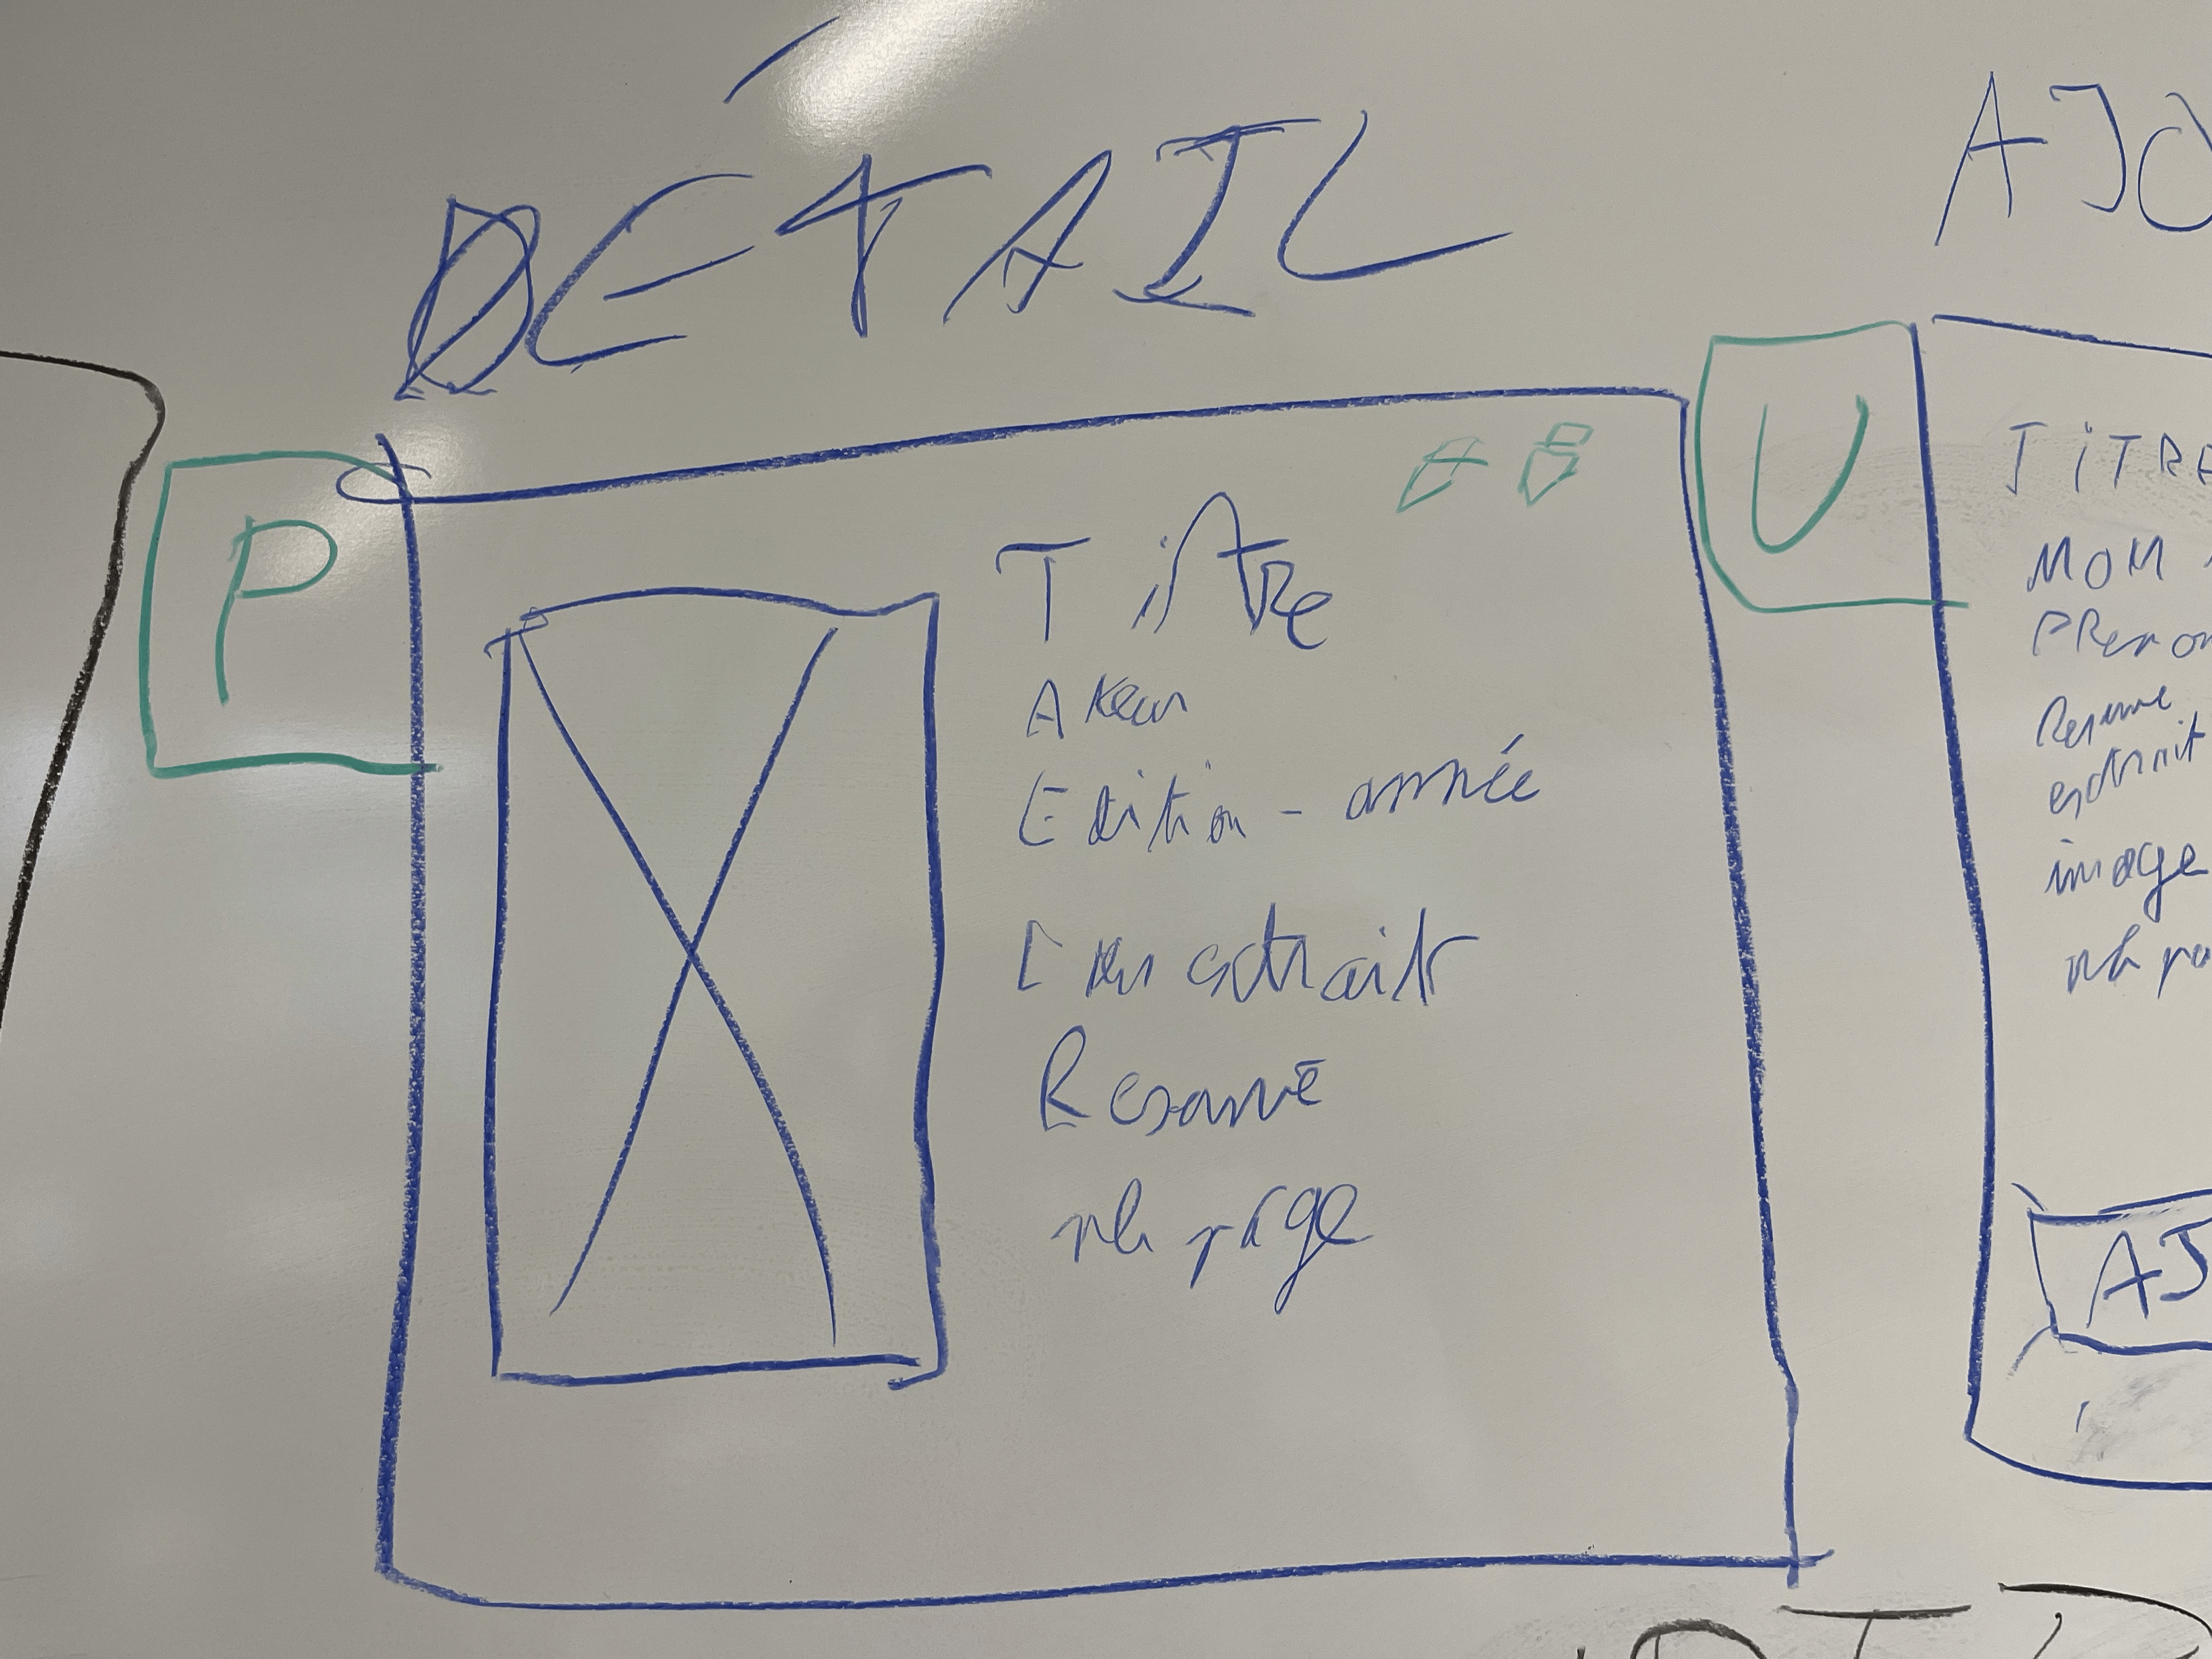 DÉTAIL
P
Titre
Auteur
Edition - année
Lien extrait
Resumé
nb page
U
AJO
TITRE
NOM
PRenom
Resume
extrait
image
nb pa
AJ